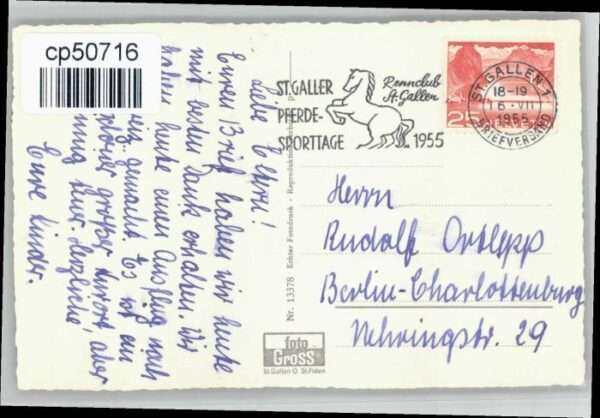 cp50716
ST. GALLER
PFERDE-
SPORTTAGE
Rennclub
St. Gallen
1955
ST. GALLEN 1
18-19
6. VII
1955
BRIEFVERSAND
20
Liebe Eltern!
Euren Brief haben wir heute
mit bestem Dank erhalten. Wir
haben heute einen Ausflug nach
gemacht. Es ist ein
großer Kurort, aber
teuer. Herzliche
Eure Kinder.
Nr. 13378 Echter Fotodruck - Reproduktion
Herrn
Rudolf Ortlepp
Berlin-Charlottenburg
Nehringstr. 29
foto
Gross
St. Gallen O St. Fiden